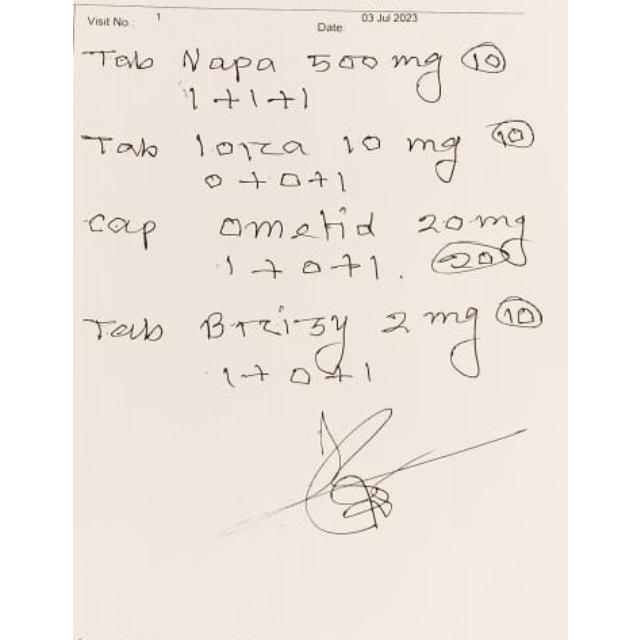 Visit No.: 1 Date: 03 Jul 2023
Tab Napa 500 mg 10
1+1+1
Tab 10 mg 10
0+0+1
cap Ometid 20mg
1+0+1. 20
Tab 2 mg 10
1+0+1